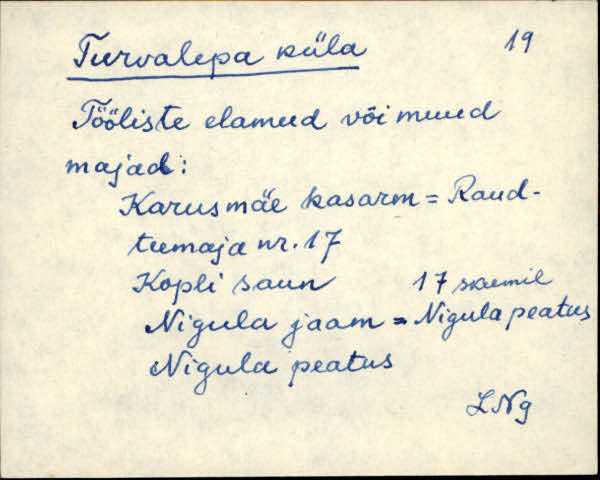 Turvalepa küla 19
Tööliste elamud või muud
majad:
Karusmäe kasarm = Raud-
teemaja nr. 17
Kopli saun 17 skeemil
Nigula jaam = Nigula peatus
Nigula peatus
LNg